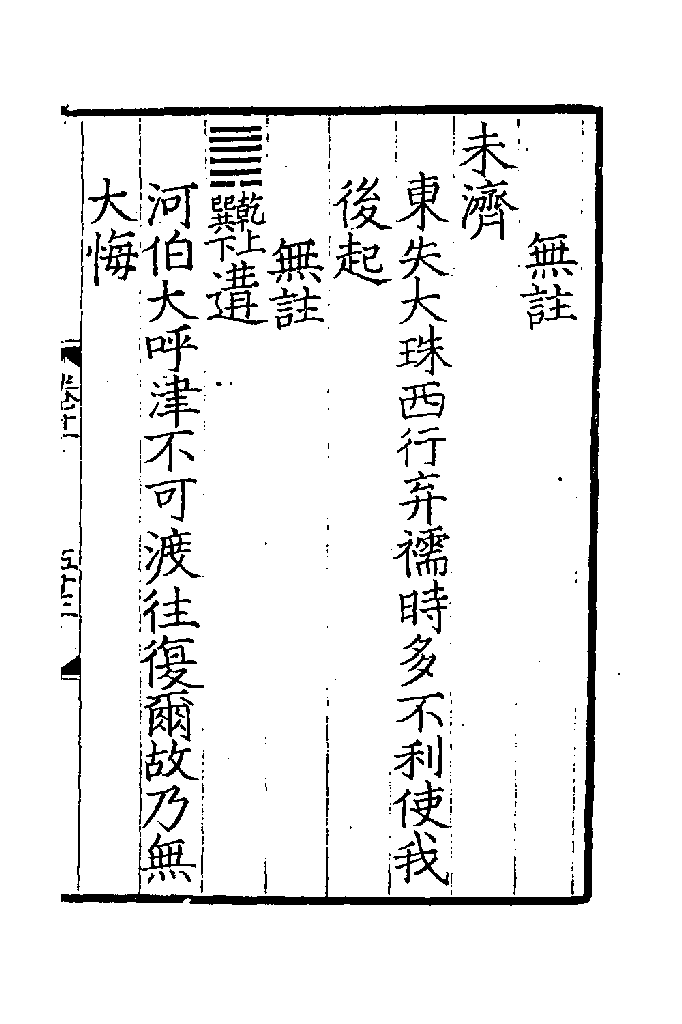 無註
未濟
東失大珠西行弃襦時多不利使我
後起
無註
䷫乾上巽下遘
河伯大呼津不可渡往復爾故乃無
大悔
卷十一
五十三